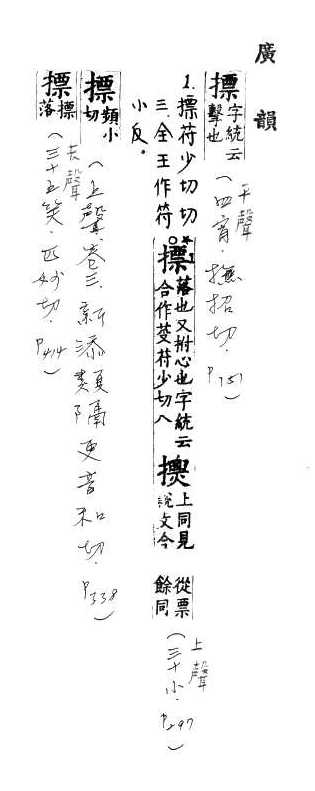 廣韻
摽字統云擊也（平聲．四宵．撫招切．P.151）
1.摽符少切切三、全王作符小反。
摽落也又拊心也字統云合作芆符少切八 㩠上同見說文今從票餘同（上聲．三十小．P.297）
摽頻小切（上聲卷三．新添類隔更音和切．P.338）
摽摽落（去聲．三十五笑．匹妙切．P.414）